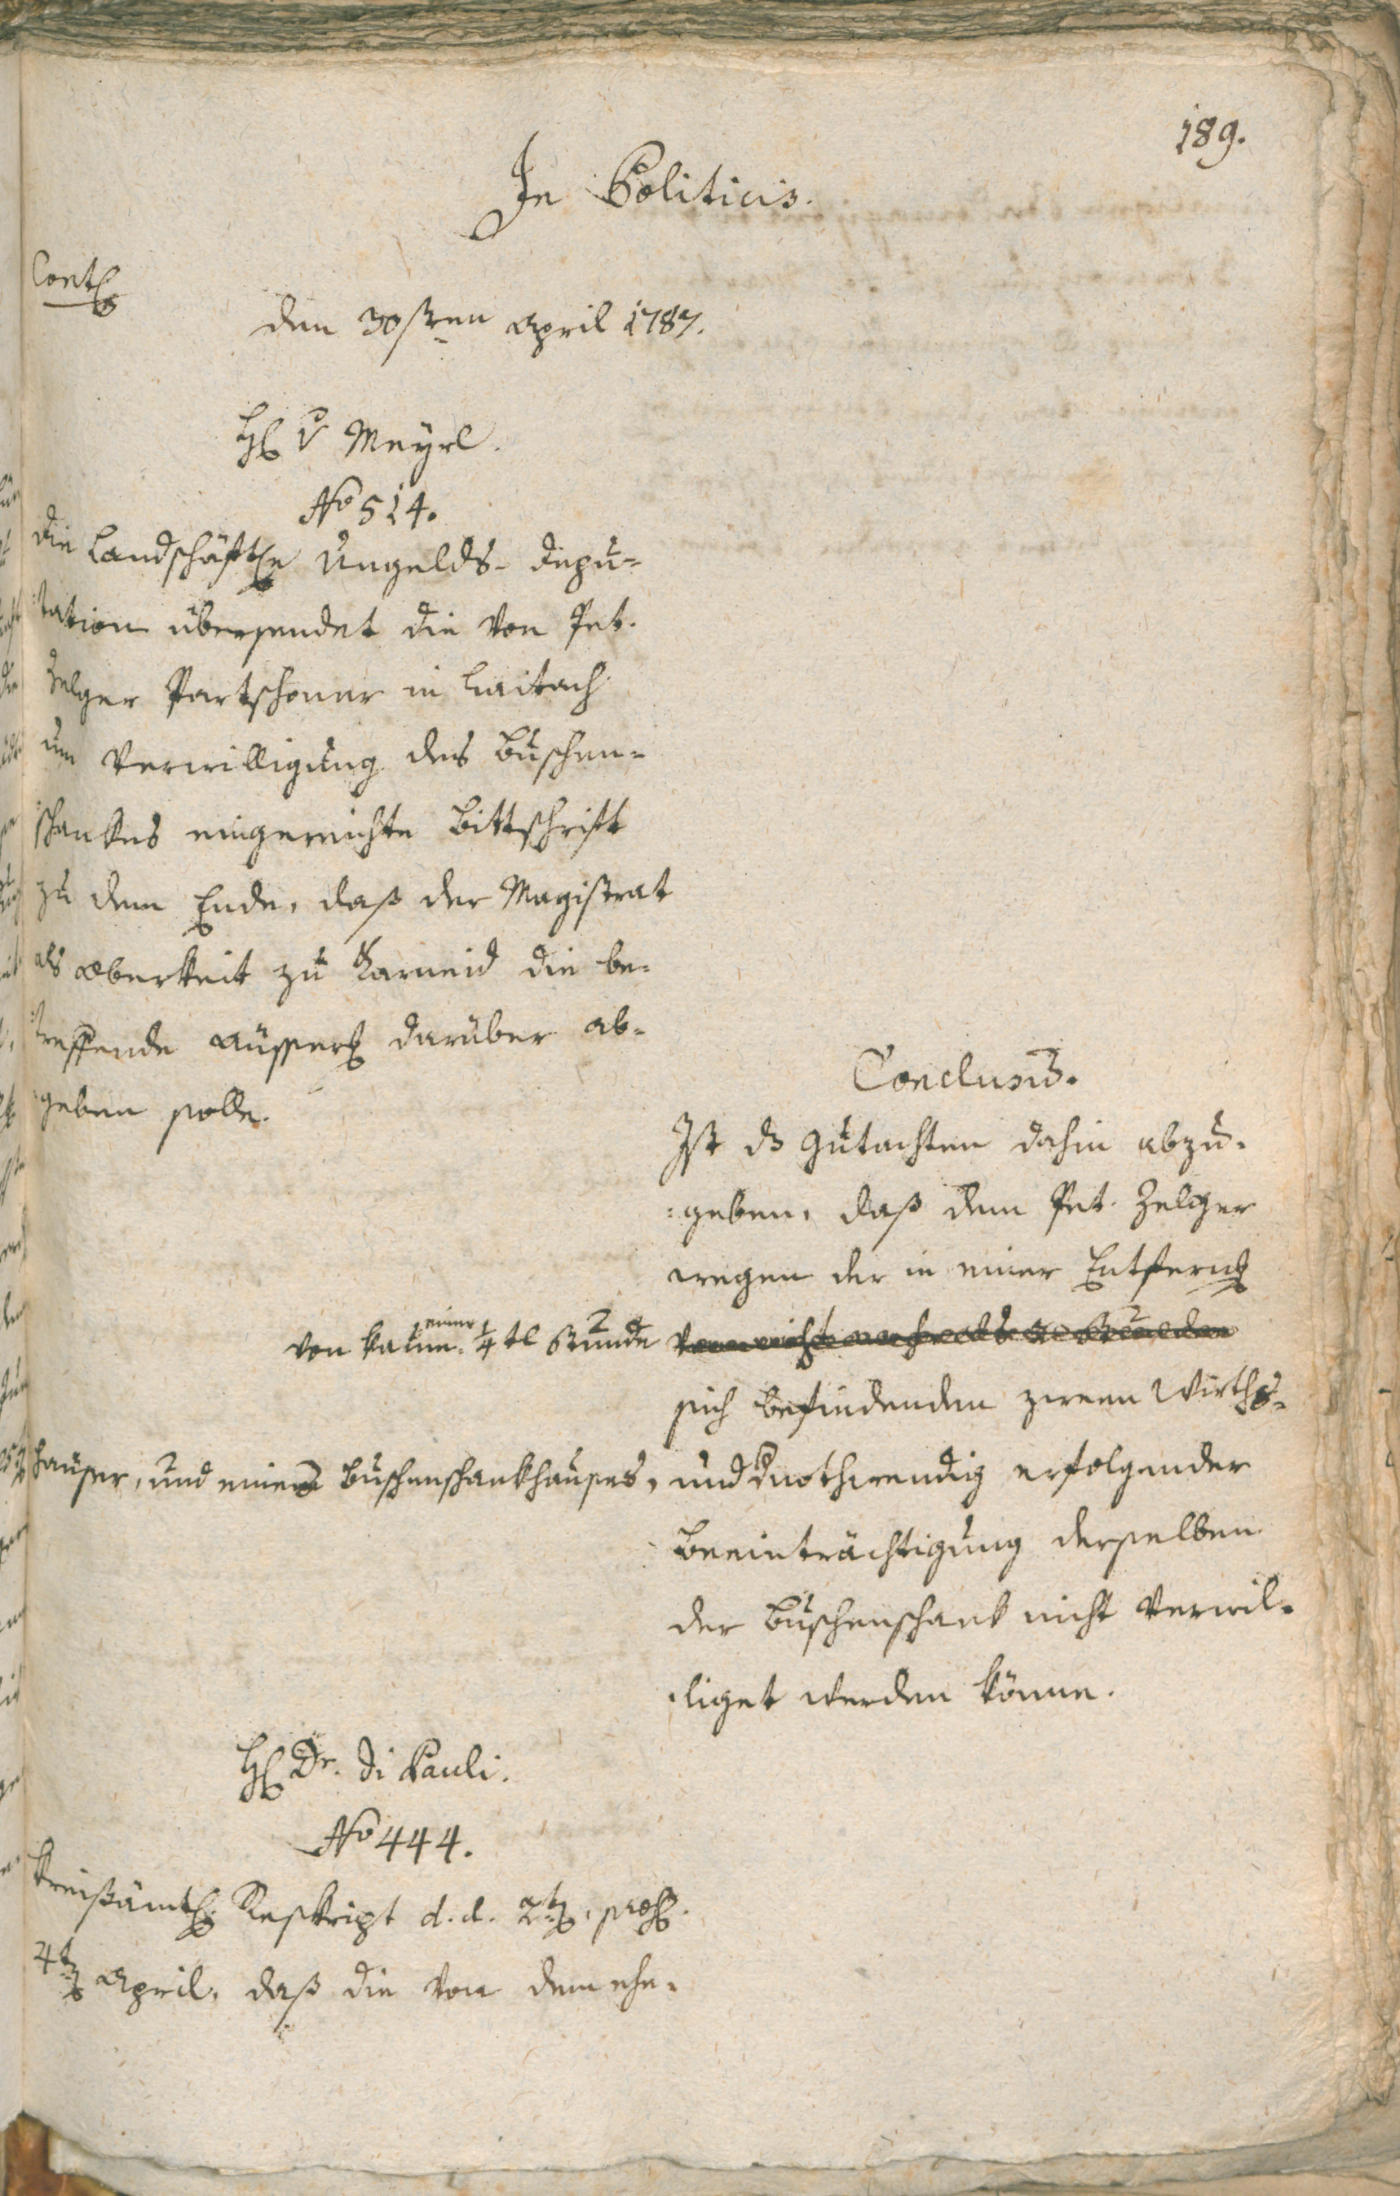 189.
In Politicis.
Cont
den 30sten April 1787.
H v Meyrl.
No 514.
die Landschäftl Ungelds- Depu-
tation übersendet die von Pet.
Zelger Partschoner in Leitach
um Verwilligung des Buschen-
schankes eingereichte Bittschrift
zu dem Ende, daß der Magistrat
als Oberkeit zu Karneid die be-
treffende äusserg darüber ab-
geben solle.
Conclusum.
Ist ds Gutachten dahin abzu-
:geben, daß dem Pet. Zelger
wegen der in einer Entferng
von kaum einer 1/4tl Stunde
sich befindenden zween Wirths-
häuser, und eines Buschenschankhauses, und nothwendig erfolgender
Beeinträchtigung derselben
der Buschenschank nicht verwil-
liget werden könne.
H Dr. Di Pauli.
No 444.
Kreißämtl Reskript d. d. 2t, præs.
4t April, daß die von dem ehe-